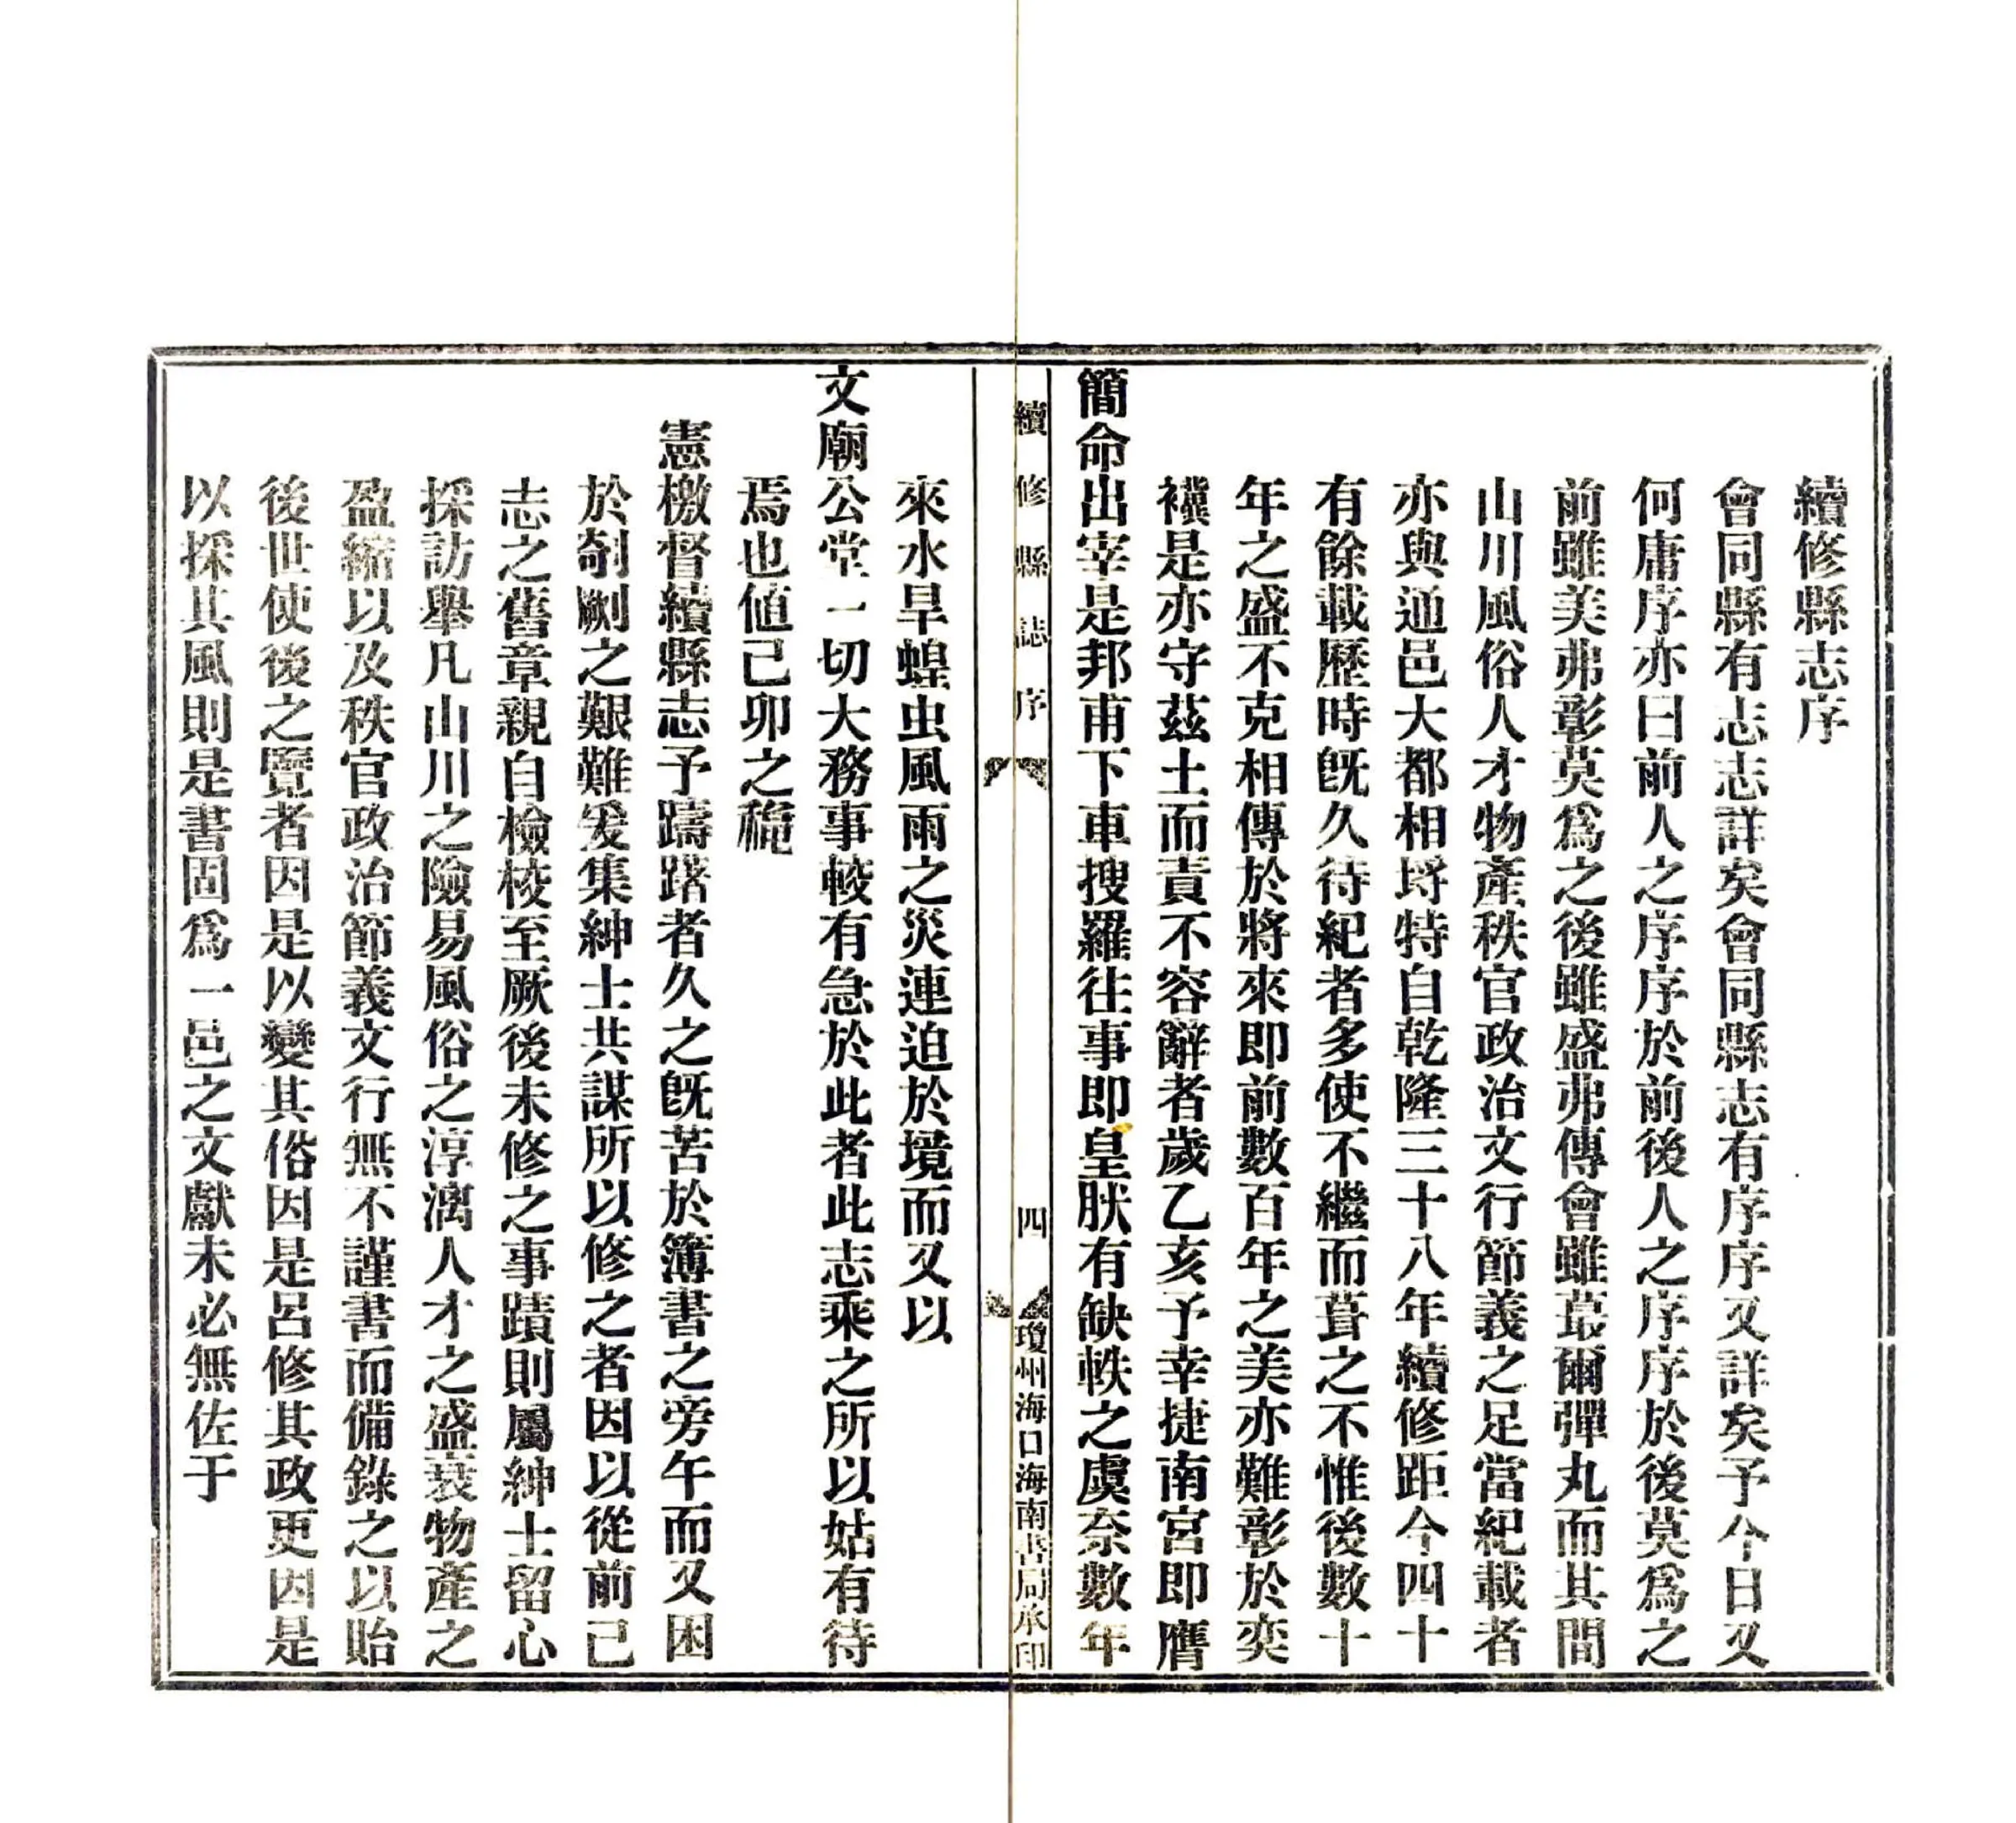 續修縣志序
會同縣有志志詳矣會同縣志有序序又詳矣予今日又
何庸序亦曰前人之序序於前後人之序序於後莫爲之
前雖美弗彰莫爲之後雖盛弗傳會雖蕞爾彈丸而其間
山川風俗人才物產秩官政治文行節義之足當紀載者
亦與通邑大都相埒特自乾隆三十八年續修距今四十
有餘載歷時旣久待紀者多使不繼而葺之不惟後數十
年之盛不克相傳於將來即前數百年之美亦難彰於奕
襈是亦守茲土而責不容辭者歲乙亥予幸捷南宮即膺
簡命出宰是邦甫下車搜羅往事即皇肰有缺軼之虞奈數年
續修縣誌序
四
瓊州海口海南書局承印
來水旱蝗虫風雨之災連迫於境而又以
文廟公堂一切大務事較有急於此者此志乘之所以姑有待
焉也値己卯之穐
憲檄督續縣志予躊躇者久之旣苦於簿書之旁午而又困
於剞劂之艱難爰集紳士共謀所以修之者因以從前已
志之舊章親自檢校至厥後未修之事蹟則屬紳士留心
採訪舉凡山川之險易風俗之淳漓人才之盛衰物產之
盈縮以及秩官政治節義文行無不謹書而備錄之以貽
後世使後之覽者因是以變其俗因是呂修其政更因是
以採其風則是書固爲一邑之文獻未必無佐于